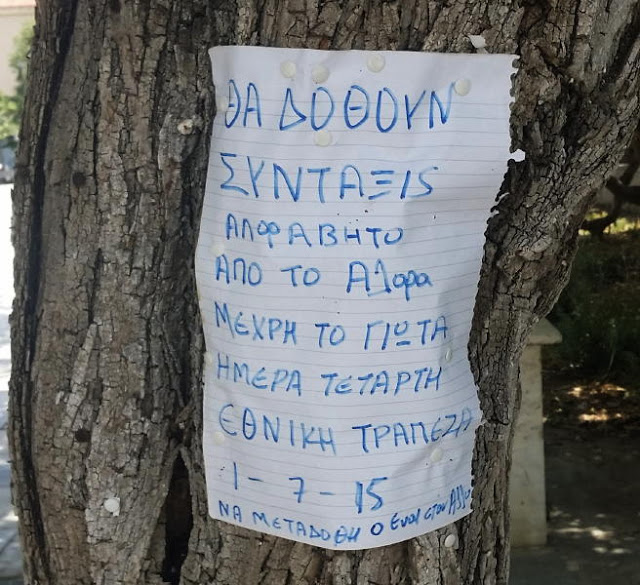 ΘΑ ΔΟΘΟΥΝ
ΣΥΝΤΑΞΙΣ
ΑΛΦΑΒΗΤΟ
ΑΠΟ ΤΟ Αλφα
ΜΕΧΡΗ ΤΟ ΓΙΩΤΑ
ΗΜΕΡΑ ΤΕΤΑΡΤΗ
ΕΘΝΙΚΗ ΤΡΑΠΕΖΑ
1-7-15
ΝΑ ΜΕΤΑΔΟΘΗ Ο Ενας στον